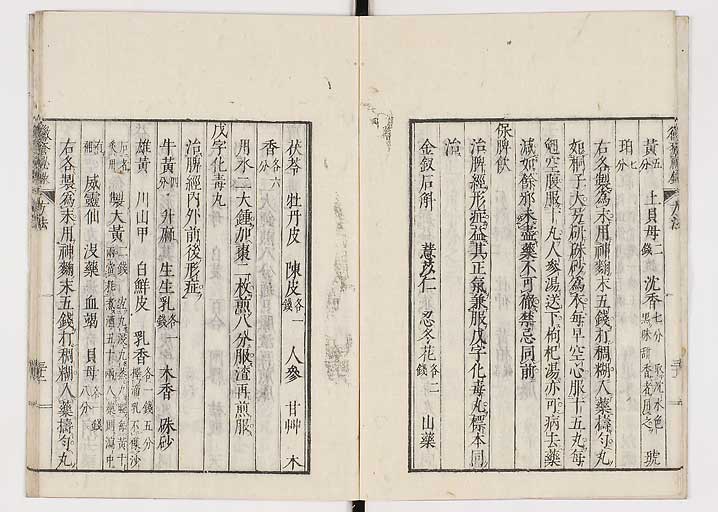 黄五分 土貝母二錢 沈香七分 取沉水色黑味甜香者用之 琥
珀七分
右各製為末用神麯末五錢打稠糊入藥擣勻丸
如桐子大另研硃砂為衣每早空心服十五丸每
空服服十丸人參湯送下枸杞湯亦可病去藥
減如餘邪未盡藥不可徹禁忌同前
保脾飲
治脾經形症益其正氣兼服戊字化毒丸標本同
治
金釵石斛 薏苡仁 忍冬花各二錢 山藥
茯苓 牡丹皮 陳皮各一錢 人參 甘艸 木
香各六分
用水二大鍾加棗二枚煎八分服渣再煎服
戊字化毒丸
治脾經內外前後形症
牛黃四分 升麻 生生乳各一錢 木香 硃砂
雄黃 川山甲 白鮮皮 乳香各一錢五分
製大黃二錢
威靈仙 沒藥 血竭 貝母各八分
右各製為末用神麯末五錢打稠糊入藥擣勻丸